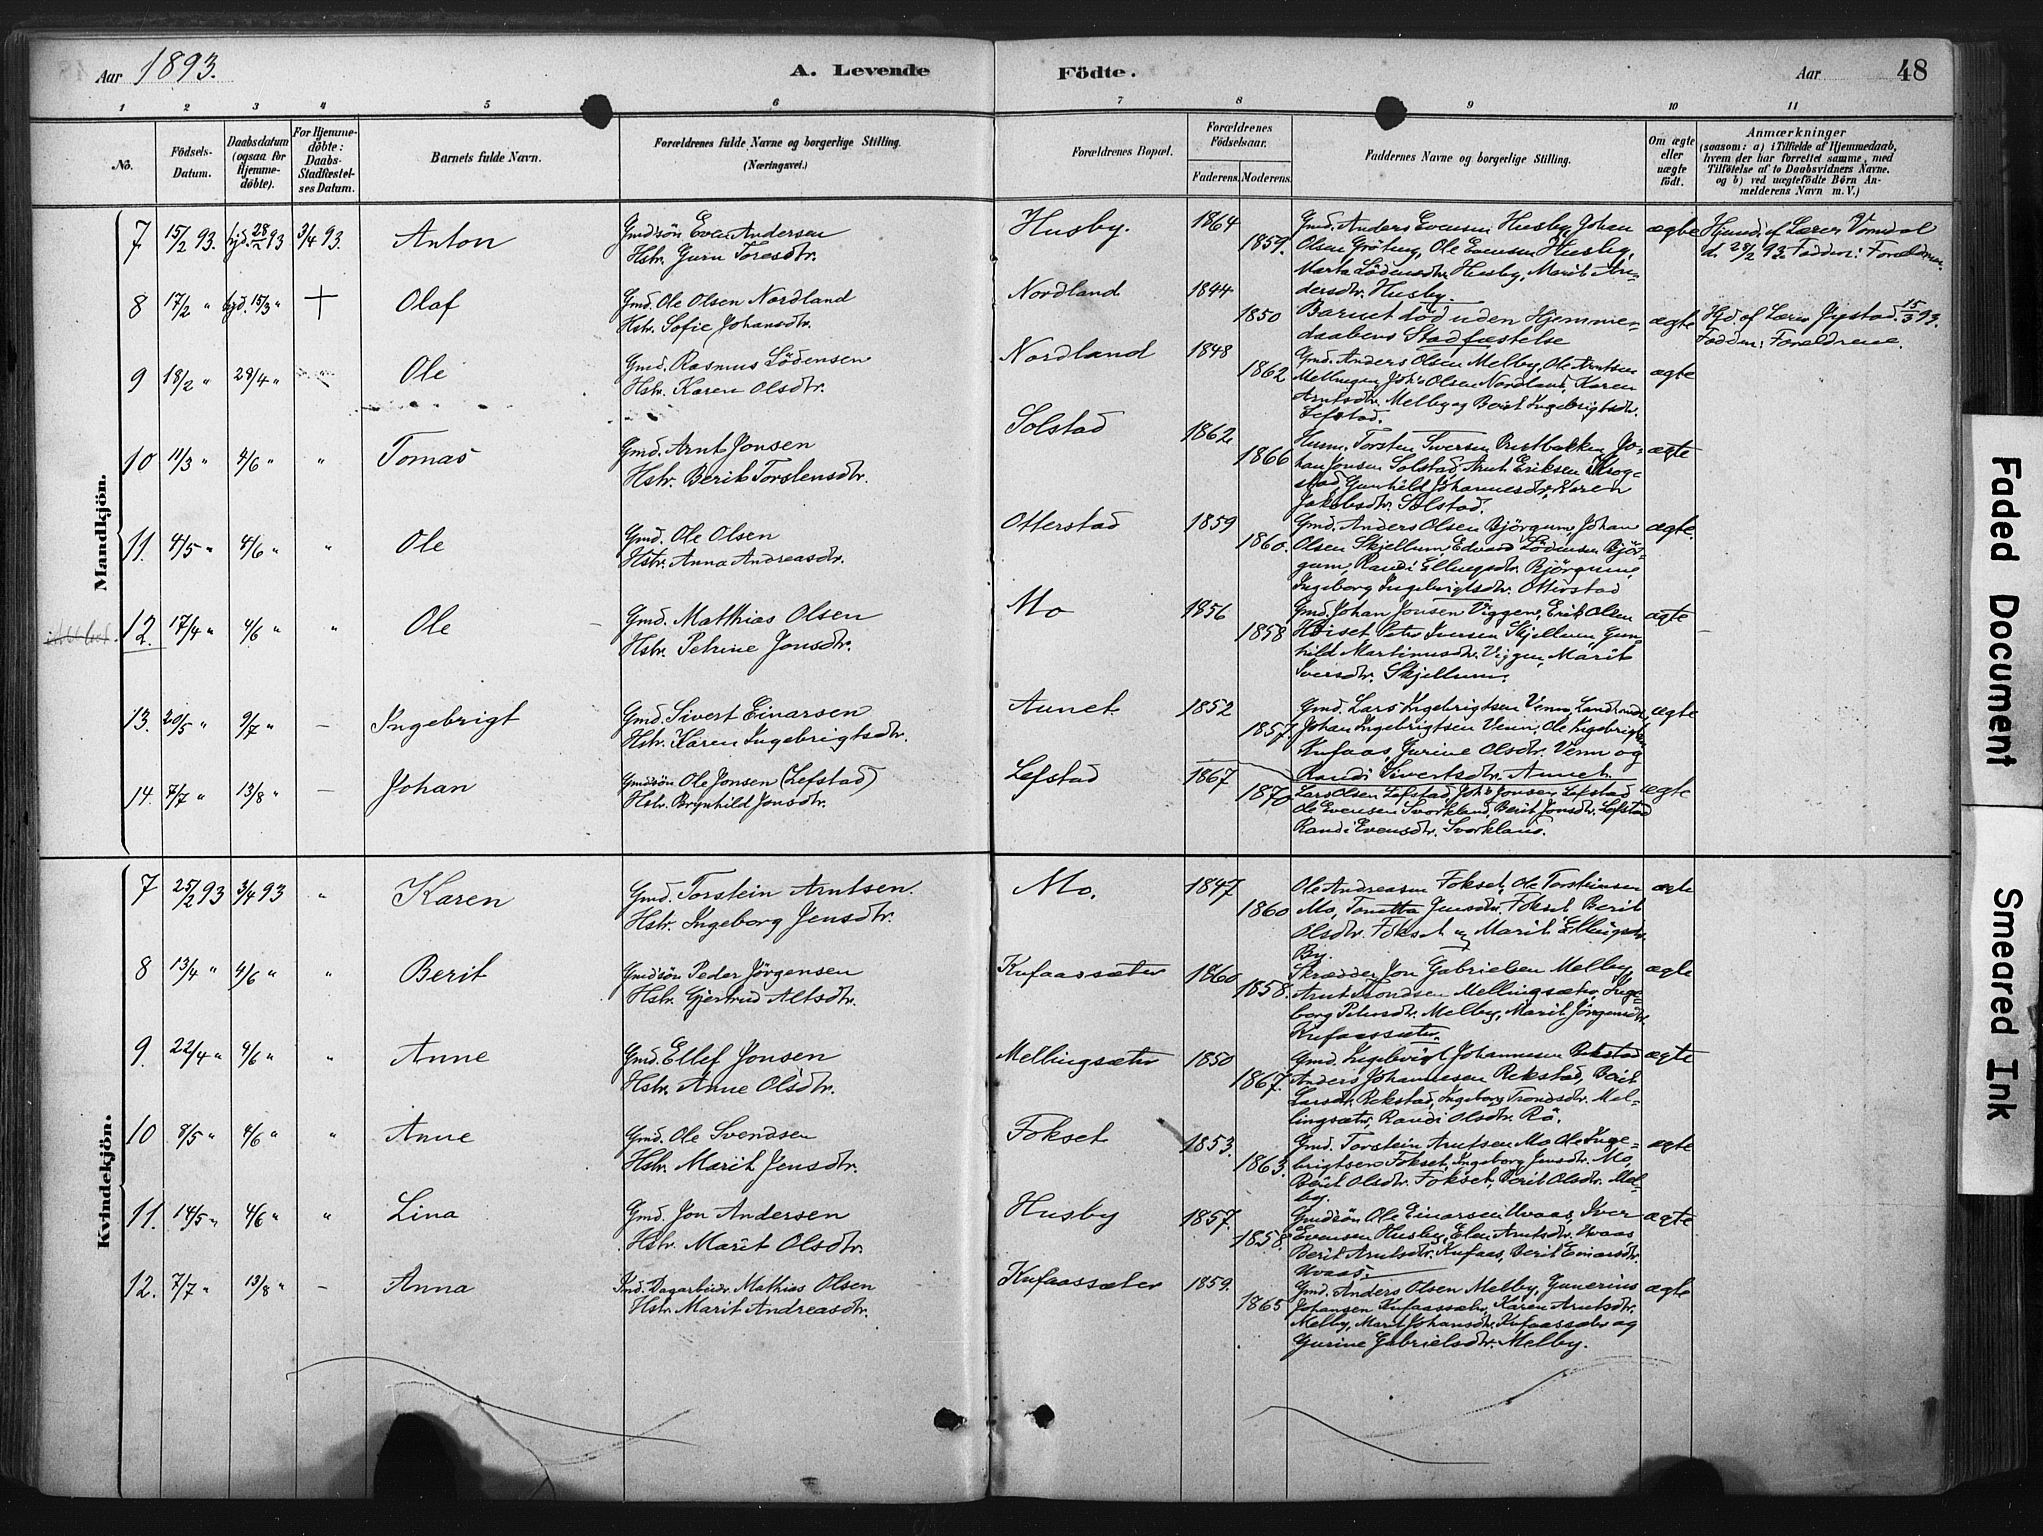 Aar 1893. A. Levende Födte. Aar 48
1 2 3 4 5 6 7 8 9 10 11
No. Födsels-Datum. Daabsdatum (ogsaa for Hjemmedöbte). For Hjemmedöbte: Daabs-Stadfæstelses Datum. Barnets fulde Navn. Forældrenes fulde Navne og borgerlige Stilling. (Næringsvei.) Forældrenes Bopæl. Forældrenes Födselsaar. Faderens. Moderens. Faddernes Navne og borgerlige Stilling. Om ægte eller uægte födt. Anmærkninger (saasom: a) i Tilfælde af Hjemmedaab, hvem der har forrettet samme, med Tilföielse af to Daabsvidners Navne. og b) ved uægtefödte Börn Anmelderens Navn m. V.)
Mandkjön.
7 15/2 93. hjd. 28/2 93 3/4 93. Anton
Gmdsön Even Andersen
Hstr. Guru Toresdtr.
Husby. 1864 1859.
Gmd. Anders Evensen Husby, Johan
Olsen Gröteng, Ole Evensen Husby,
Marta Lödensdtr. Husby, Marit An-
dersdtr. Husby.
ægte
d. 28/2 93. Faddere: Forældrene.
8 17/2 " hjd. 15/3 " + Olaf
Gmd. Ole Olsen Nordland
Hstr. Sofie Johansdtr.
Nordland 1844 1850
Barnet död uden Hjemme-
daabens Stadfæstelse
ægte
Hjd. af Lærer 15/3 93.
Faddere: Forældrene.
9 18/2 " 23/4 " " Ole
Gmd. Rasmus Lödensen
Hstr. Karen Olsdtr.
Nordland 1848 1862
Gmd. Anders Olsen Melby, Ole Arntsen
Mellingen, Johs Olsen Nordland, Karen
Arntsdtr. Melby og Berit Ingebrigtsdtr.
Lefstad.
ægte
10 11/3 " 4/6 " " Tomas
Gmd. Arnt Jonsen
Hstr. Berit Torstensdtr.
Solstad 1862 1866
Husm. Torsten Iversen Jo-
han Jonsen Solstad, Arnt Eriksen Skog-
stad, Gunhild Johannesdtr., Karen
Jakobsdtr. Solstad.
ægte
11. 4/5 " 4/6 " " Ole
Gmd. Ole Olsen
Hstr. Anna Andreasdtr.
Otterstad 1859 1860.
Gmd. Anders Olsen Björgum, Johan
Olsen Skjellum, Edvard Lödensen Björ-
gum, Randi Ellingsdtr. Björgum,
Ingeborg Ingebrigtsdtr. Otterstad
ægte.
12. 17/4 " 4/6 " " Ole
Gmd. Matthias Olsen
Hstr. Petrine Jonsdtr.
Mo 1856 1858
Gmd. Johan Jonsen Viggen, Erik Olsen
Höiset, Peter Iversen Skjellum, Gun-
hild Martinusdtr. Viggen, Marit
Iversdtr. Skjellum.
ægte
13. 20/5 " 9/7 " – Ingebrigt
Gmd. Sivert Einarsen
Hstr. Karen Ingebrigtsdtr.
Aunet 1852 1857.
Gmd. Lars Ingebrigtsen Venn,
Johan Ingebrigtsen Venn, Ole Ingebrigtsen
Kufaas, Gurine Olsdtr. Venn og
Randi Sivertsdtr. Aunet.
ægte
14. 7/7 " 13/8 " – Johan
Gmdsön Ole Jonsen (Lefstad)
Hstr. Brynhild Jonsdtr.
Lefstad 1867 1870
Lars Olsen Lefstad, Johs Jonsen Lefstad
Ole Evensen Svorkland, Berit Jonsdtr. Lefstad
Randi Evensdtr. Svorkland.
ægte
Kvindekjön.
7 25/2 93 3/4 93 " Karen
Gmd. Torstein Arntsen.
Hstr. Ingeborg Jensdtr.
Mo. 1847 1860
Ole Andreasen Fokset, Ole Torsteinsen
Mo, Tonetta Jensdtr. Fokset, Berit
Olsdtr. Fokset og Marit Ellingsdtr.
By.
ægte
8 13/4 " 4/6 " " Berit
Gmdsön Peder Jörgensen
Hstr. Gjertrud Altsdtr.
Kufaassæter 1860 1858.
Skrædder Jon Gabrielsen Melby,
Arnt Trondsen Mellingsæter, Inge-
borg Petersdtr. Melby, Marit Jörgensdtr.
Kufaassæter.
ægte
9. 22/4 " 4/6 " " Anne
Gmd. Ellef Jonsen
Hstr. Anne Olsdtr.
Mellingsæter 1850 1867.
Gmd. Ingebrigt Johannesen Rekstad
Anders Johannesen Rekstad, Berit
Larsdtr. Rekstad, Ingeborg Trondsdtr. Mel-
lingsæter, Randi Olsdtr. Rö.
ægte
10 8/5 " 4/6 " " Anne
Gmd. Ole Svendsen
Hstr. Marit Jensdtr.
Fokset 1853. 1863.
Gmd. Torstein Arntsen Mo, Ole Inge-
brigtsen Fokset, Ingeborg Jensdtr. Mo,
Berit Olsdtr. Fokset, Berit Olsdtr. Mel-
by.
ægte
11. 14/5 " 4/6 " " Lina
Gmd. Jon Andersen
Hstr. Marit Olsdtr.
Husby 1857. 1858.
Gmdsön Ole Einarsen Uvaas, Iver
Evensen Husby, Elen Arntsdtr. Uvaas
Berit Arntsdtr. Kufaas, Berit Einarsdtr.
Uvaas.
ægte
12. 7/7 " 13/8 " – Anna
Ind. Dagarbeidr. Mathias Olsen
Hstr. Marit Andreasdtr.
Kufaassæter 1859. 1865
Gmd. Anders Olsen Melby, Gunerius
Johansen Kufaassæter, Karen Arntsdtr.
Melby, Marit Johansdtr. Kufaassæter og
Gurine Gabrielsdtr. Melby.
ægte
Faded Document
Smeared Ink